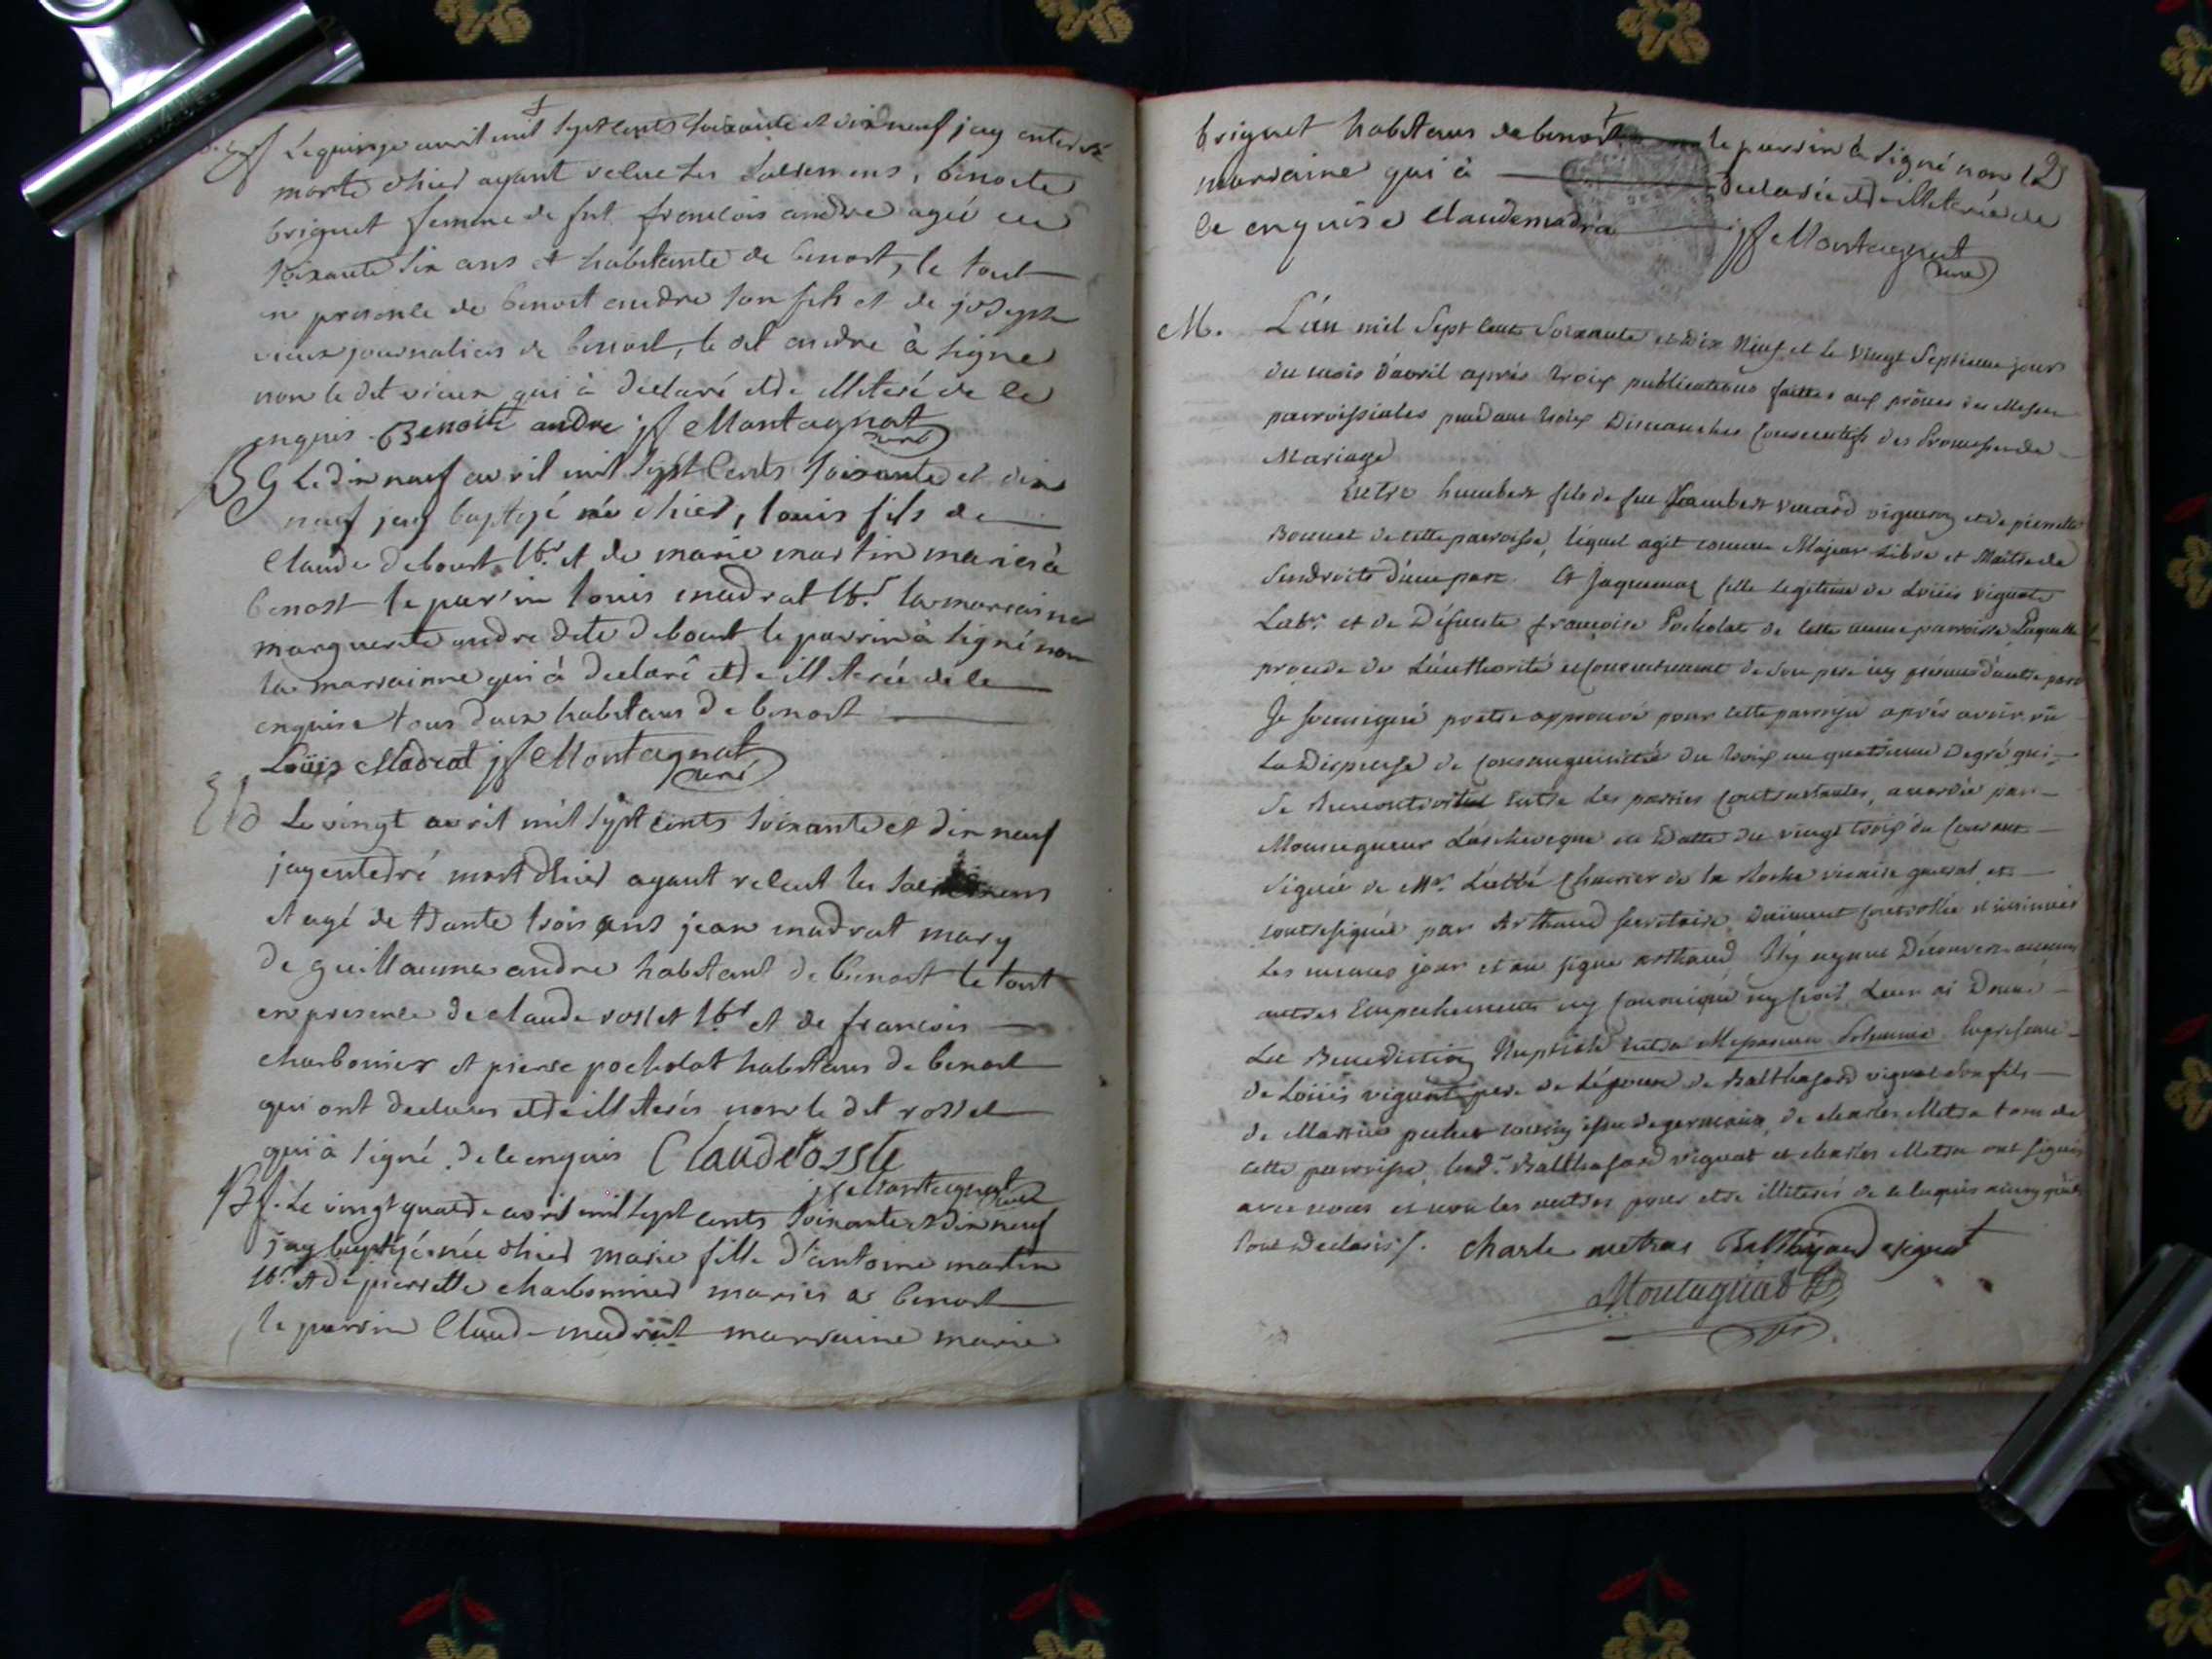 Le quinze avril mil sept cents soixante et dix neuf jay enterré
morte d'hier ayant reçue les sacremens, benoite
briguet femme de fut françois andre agée de
soixante six ans et habitante de benost, le tout
en presence de benost andre son fils et de joseph
vieux journaliers de benost, le dit andre à signé
non le dit vieux qui à declaré etre illiteré de ce
enquis. Benoist andre jf Montagnat
curé
BG Le dix neuf avril mil sept cents soixante et dix
neuf jay baptizé né d'hier, louis fils de
Claude debourt lbr. et de marie martin mariés à
benost le parrin louis madrat lbr. la marraine
marguerite andre dite debourt le parrin à signé non
la marrainne qui à declaré etre illiterée de ce
enquise tous deux habitans de benost
Loüis Madrat jf Montagnat
curé
Le vingt avril mil sept cents soixante et dix neuf
jay enterré mort d'hier ayant releut les sacremens
et agé de trante trois ans jean madrat mary
de guillauma andre habitant de benost le tout
en presence de claude rosset lbr et de francois
charbonier et pierre pocholat habitans de benost
qui ont declarés etre illiterés non le dit rosset
qui à signé de ce enquis Claude rosste
jf Montagnat curé
Bf. Le vingt quatre avril mil sept cents soixante et dix neuf
jay baptizé née d'hier marie fille d'antoine martin
lbr. et de pierrette charbonnier mariés à benost
le parrin Claude madrat marraine marie
briguet habitans de benost le parrin à signé non la
marraine qui à declarée etre illiterée de
ce enquise Claude madra
jf Montagnat
curé
M. L'an mil Sept Cent Soixante et Dix Neuf et le Vingt Septieme jour
du mois d'avril après trois publications faittes aux prônes des Messes
parroissiales pendant trois Dimanches Consecutifs des Promesses de
Mariage
Entre humbert fils de feu humbert vuard vigneron et de pierrette
Bonnet de cette parroisse, lequel agit comme Majeur Libre et Maître de
Ses droits d'une part. Et Jaquemaz fille Legitime de Loüis vignat
Labr. et de Défunte françoise Pocholat de cette meme parroisse Laquelle
procede de L'authorité et consentement de son pere icy présent d'autre part
Je Soussigné prètre approuvé pour cette parroisse après avoir vû
La Dispense de Consanguinité du trois au quatrieme Degré qui
se rencontroit entre les parties Contractantes, accordée par
Monseigneur L'archeveque en Datte du vingt trois du Courant
Signée de Mr. L'abbé Charrier de la Roche vicaire general et
contresignée par Arthaud Secretaire, Duëment controllée et insinuée
les memes jour et an signé arthaud N'y ayant Découvert aucuns
autres Empechements ny Canonique ny Civil Leur ai Donné
La Benediction Nuptiale en presence
de Loüis vignat pere de L'épouse de Balthasard vignat son fils
de cousin issu de germain, de charles Metra tous de
cette parroisse, Led. Balthasard vignat et charles Metra ont signés
avec nous et non les autres pour etre illiterés de ce enquis ainsy qu'ils
l'ont Declarés. Charle metras Balthazard vignat
Montagniat